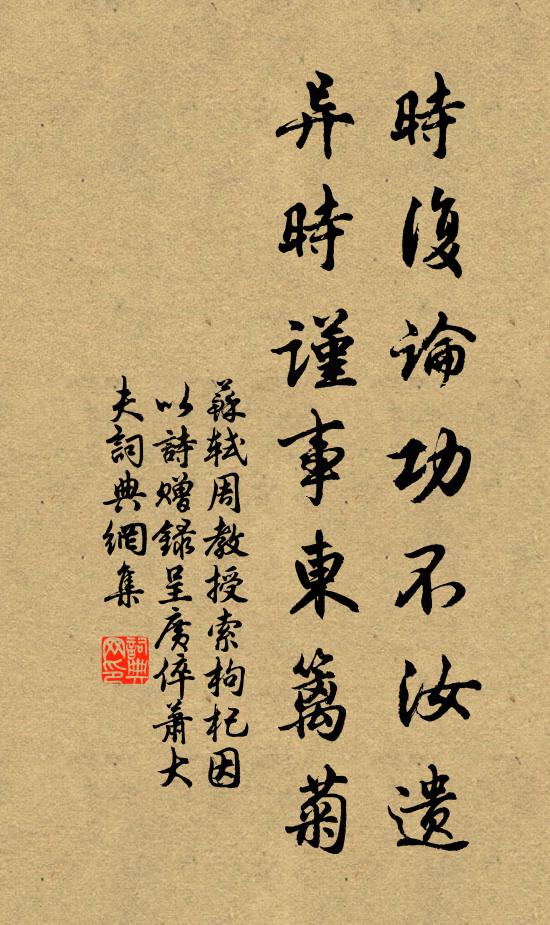 時復論功不汝遺
异時謹事東籬菊
蘇軾周教授索枸杞因
以詩赠録呈廣倅蕭大
夫詞典網集
詞典
网印